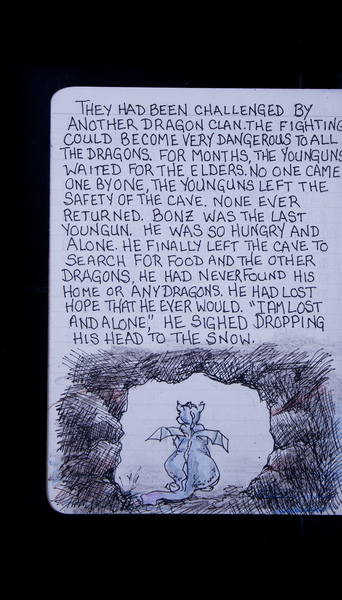 THEY HAD BEEN CHALLENGED BY
ANOTHER DRAGON CLAN. THE FIGHTING
COULD BECOME VERY DANGEROUS TO ALL
THE DRAGONS. FOR MONTHS, THE YOUNGUNS
WAITED FOR THE ELDERS. NO ONE CAME
ONE BY ONE, THE YOUNGUNS LEFT THE
SAFETY OF THE CAVE. NONE EVER
RETURNED. BONZ WAS THE LAST
YOUNGUN. HE WAS SO HUNGRY AND
ALONE. HE FINALLY LEFT THE CAVE TO
SEARCH FOR FOOD AND THE OTHER
DRAGONS, HE HAD NEVER FOUND HIS
HOME OR ANY DRAGONS. HE HAD LOST
HOPE THAT HE EVER WOULD. "I AM LOST
AND ALONE," HE SIGHED DROPPING
HIS HEAD TO THE SNOW.